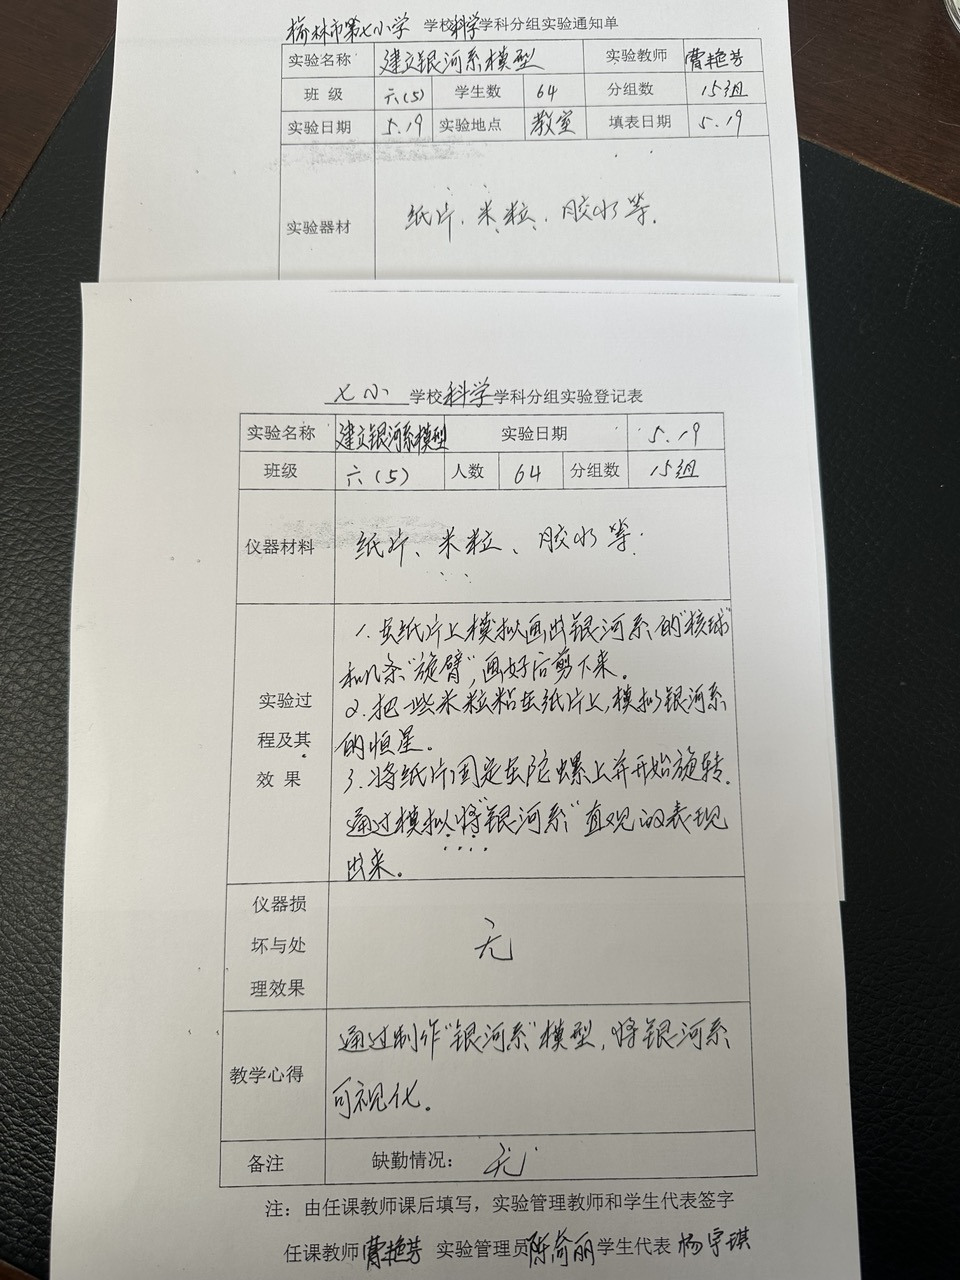 榆林市第七小学 学校科学学科分组实验通知单
实验名称 建立银河系模型 实验教师 曹艳芳
班 级 六(5) 学生数 64 分组数 15组
实验日期 5.19 实验地点 教室 填表日期 5.19
实验器材 纸片、米粒、胶水等.
七小 学校科学学科分组实验登记表
实验名称 建立银河系模型 实验日期 5.19
班级 六(5) 人数 64 分组数 15组
仪器材料 纸片、米粒、胶水等.
实验过
程及其
效 果
1.在纸片上模拟画出银河系的"核球"
和几条"旋臂",画好后剪下来。
2.把一些米粒粘在纸片上,模拟银河系
的恒星。
3.将纸片固定在陀螺上并开始旋转.
通过模拟将"银河系"直观的表现
出来。
仪器损
坏与处
理效果
无
教学心得
通过制作"银河系"模型,将银河系
可视化。
备注 缺勤情况: 无
注:由任课教师课后填写,实验管理教师和学生代表签字
任课教师 曹艳芳 实验管理员 陈奇丽 学生代表 杨宇琪